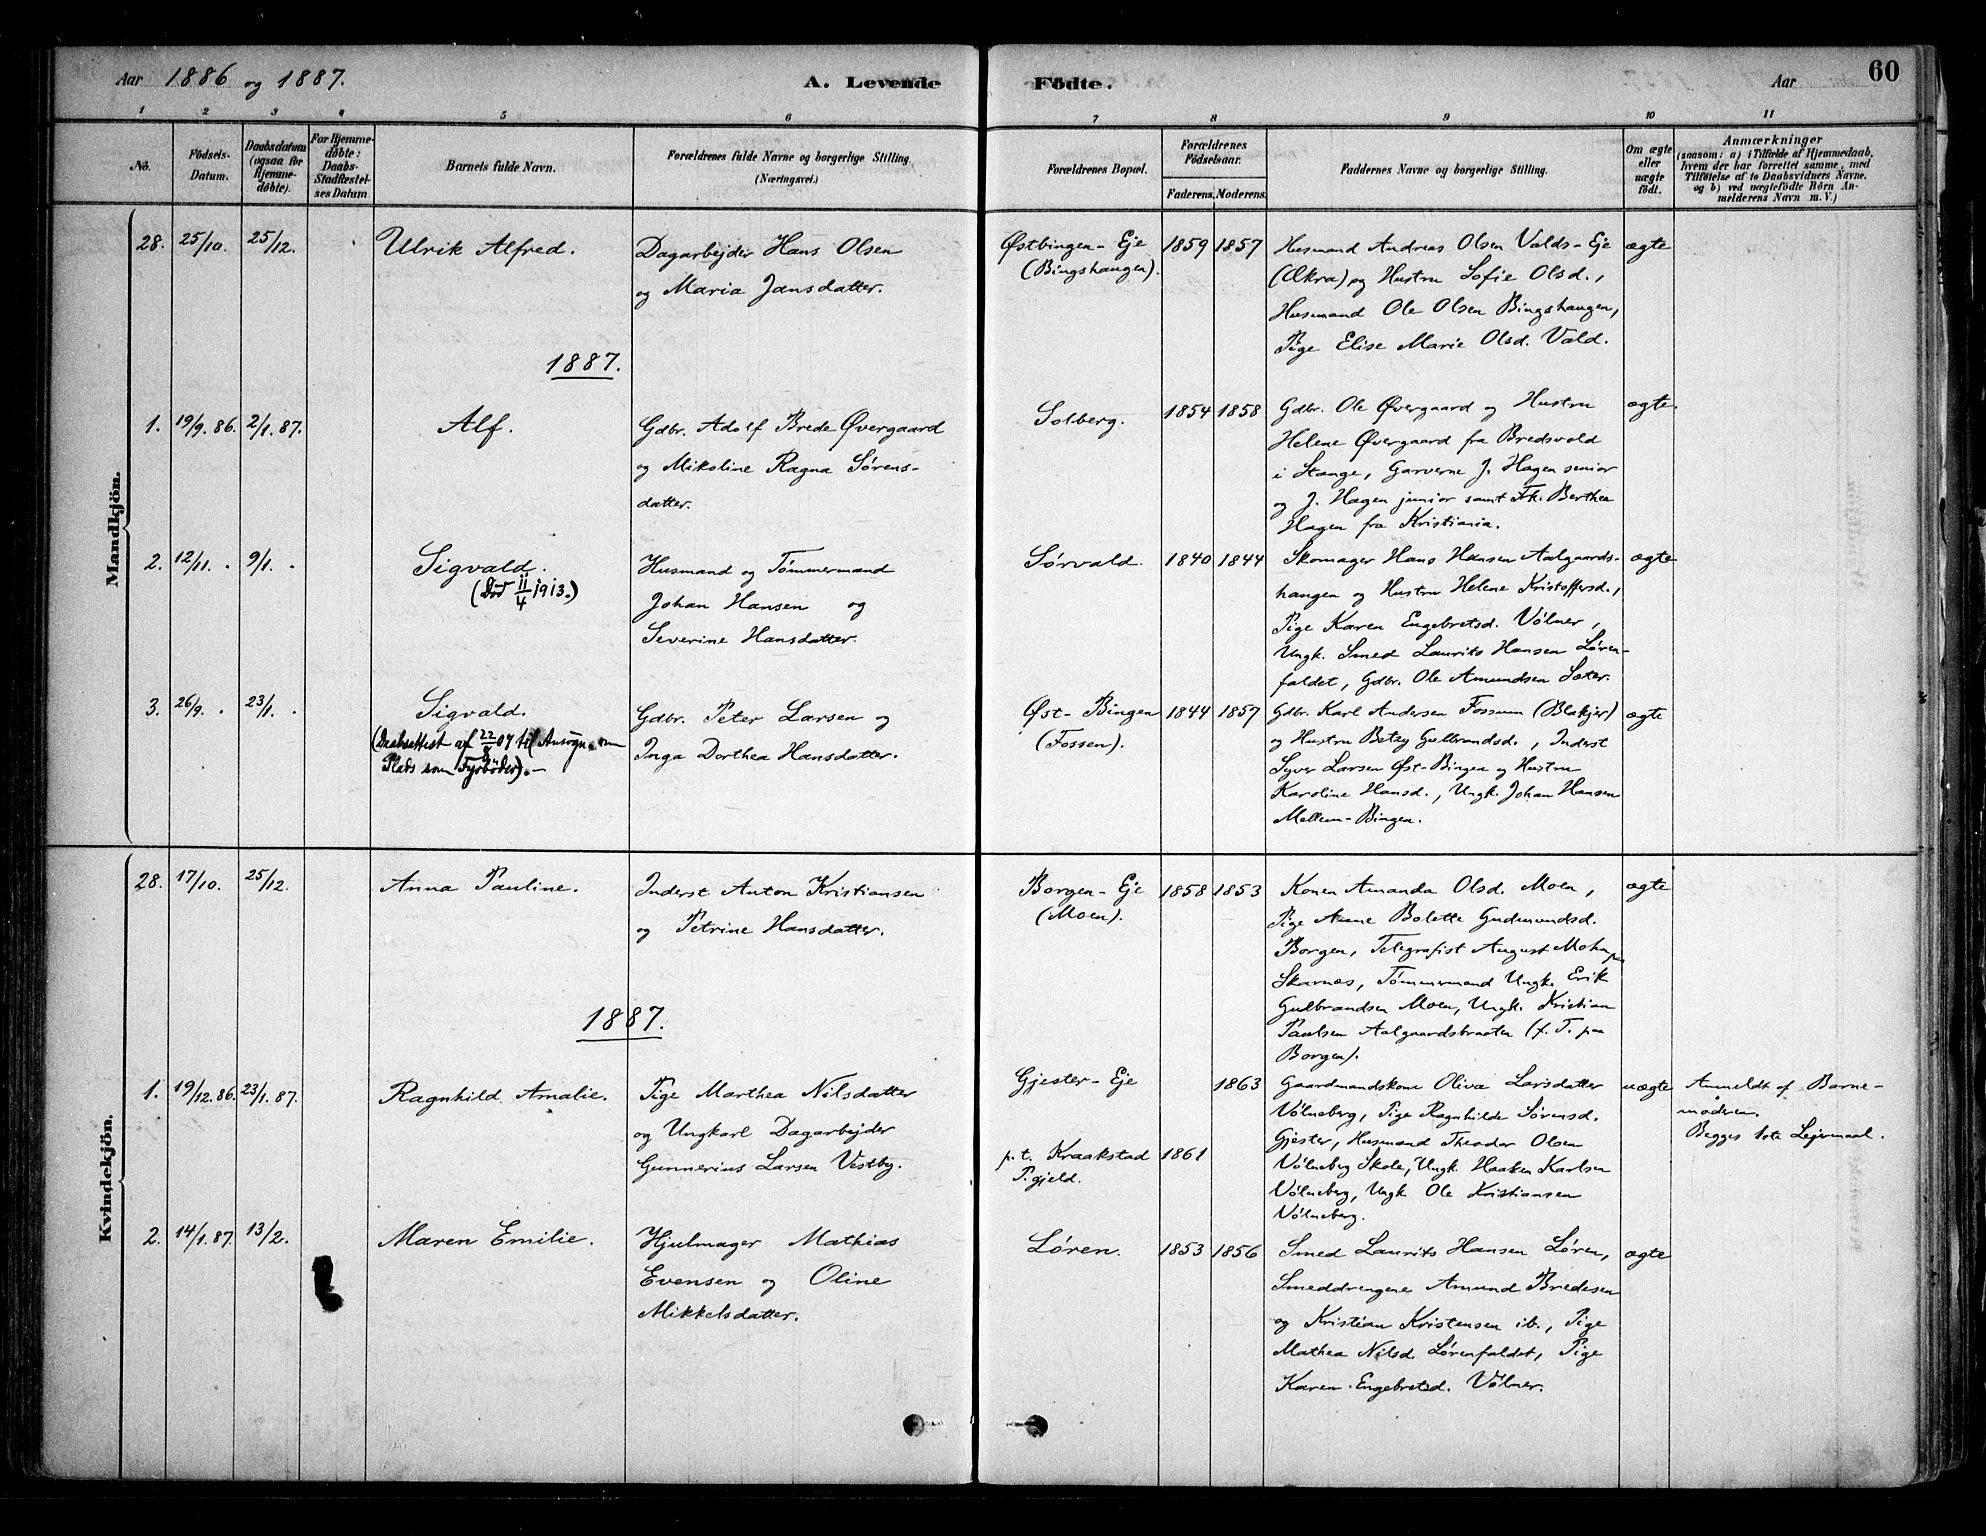 Aar 1886 og 1887.
A. Levende Födte.
Aar
60
1 2 3 4 5 6 7 8 9 10 11
No.
Födsels-Datum.
Daabsdatum (ogsaa for Hjemmedøbte).
For Hjemmedøbte: Daabs-Stadfæstelses Datum
Barnets fulde Navn.
Forældrenes fulde Navne og borgerlige Stilling (Næringsvei.)
Forældrenes Bopæl.
Forældrenes Födselsaar.
Faderens. Moderens.
Faddernes Navne og borgerlige Stilling.
Om ægte eller uægte født.
Anmærkninger
(saasom: a) i Tilfælde af Hjemmedaab,
hvem der har forrettet samme, med
Tilföielse af to Daabsvidners Navne,
og b) ved uægtefödte Börn An-
melderens Navn m. V.)
Mandkjön.
28. 25/10. 25/12. Ulrik Alfred.
Dagarbejder Hans Olsen
og Maria Jansdatter.
Østbingen-Eje
(Bingshaugen).
1859 1857
Husmand Andreas Olsen Valds-Eje
(Økra) og Hustru Sofie Olsd.,
Husmand Ole Olsen Bingshaugen,
Pige Elise Marie Olsd. Vald.
ægte
1887.
1. 19/9. 86. 2/1. 87. Alf.
Gdbr. Adolf Brede Øvergaard
og Mikoline Ragna Sørens-
datter.
Solberg.
1854 1858
Gdbr. Ole Øvergaard og Hustru
Helene Øvergaard fra Bredsvold
i Stange, Garverne J. Hagen senior
og J. Hagen junior samt Frk. Berthea
Hagen fra Kristiania.
ægte.
2. 12/11. . 9/1. . Sigvald.
(Død 11/4 1913.)
Husmand og Tømmermand
Johan Hansen og
Severine Hansdatter.
Sørvald.
1840 1844
Skomager Hans Hansen Aalgaards-
haugen og Hustru Helene Kristoffersd.,
Pige Karen Engebretsd. Vølner,
Ungk. Smed Laurits Hansen Løren-
faldet, Gdbr. Ole Amundsen Sæter.
ægte
3. 26/9. . 23/1. . Sigvald.
(Daabsattest af 22/8 07 til Ansøgn. om
Plads som Fyrbøder).-
Gdbr. Peter Larsen og
Inga Dorthea Hansdatter.
Øst-Bingen
(Fossen).
1844 1857
Gdbr. Karl Andersen Fossum (Blakjer)
og Hustru Betzy Gulbrandsd., Inderst
Syver Larsen Øst-Bingen og Hustru
Karoline Hansd., Ungk. Johan Hansen
Mellem-Bingen.
ægte
Kvindekjön.
28. 17/10. 25/12. Anna Pauline.
Inderst Anton Kristiansen
og Petrine Hansdatter.
Borgen-Eje
(Moen).
1858 1853
Konen Amanda Olsd. Moen,
Pige Anne Bolette Gudmundsd.
Borgen, Telegrafist August Mohn paa
Skarnæs, Tømmermand Ungk. Erik
Gulbrandsen Moen, Ungk. Kristian
Paulsen Aalgaardsbraaten (f. T. paa
Borgen).
ægte
1887.
1. 19/12. 86. 23/1. 87. Ragnhild Amalie.
Pige Marthea Nilsdatter
og Ungkarl Dagarbejder
Gunnerius Larsen Vestby.
Gjester-Eje
p. t. Kraakstad
Pgjeld.
1863
1861
Gaardmandskone Oliva Larsdatter
Vølneberg, Pige Ragnhilde Sørensd.
Gjester, Husmand Theodor Olsen
Vølneberg Skole, Ungk. Haaken Karlsen
Vølneberg, Ungk. Ole Kristiansen
Vølneberg.
uægte
Anmeldt af Barne-
moderen.
Begges 1ste Lejermaal.
2. 14/1. 87. 13/2. Maren Emilie.
Hjulmager Mathias
Evensen og Oline
Mikkelsdatter.
Løren.
1853 1856
Smed Laurits Hansen Løren,
Smeddrengene Amund Bredesen
og Kristian Kristensen ib., Pige
Mathea Nilsd. Lørenfaldet, Pige
Karen Engebretsd. Vølner.
ægte